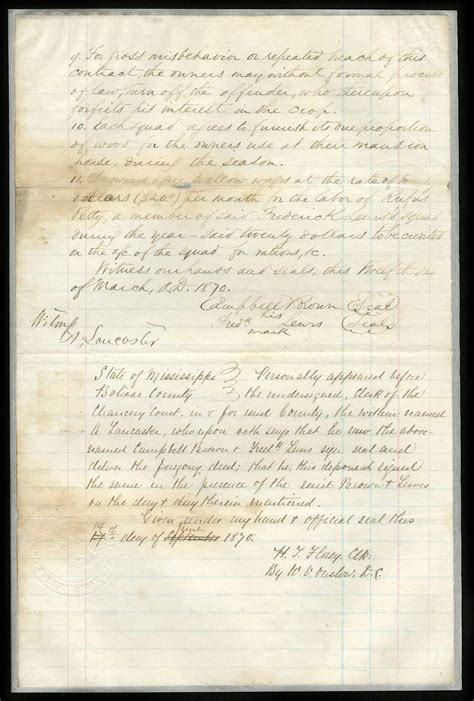 9. For gross misbehavior or repeated breach of this
contract, the owners may without formal process
of law, turn off the offender, who thereupon
forfeits his interest in the crop.
10. Each squad agrees to furnish its one proportion
of wood for the owners use at their mansion
house, during the season.
11. The owners agree to allow wages at the rate of twenty
dollars ($20.00) per month for the labor of Rufus
Petty, a member of said Frederick Lewis's Squad
during the year - Said twenty dollars to be credited
on the a/c. of the squad for rations, &c.
Witness our hands and seals, this Twelfth day
of March, A.D. 1870.
Campbell Brown Seal
his
Fredk Lewis Seal
mark
Witness
A. Lancaster
State of Mississippi } Personally appeared before
Bolivar County } the undersigned, Clerk of the
Chancery Court, in & for said County, the within named
A Lancaster, who upon oath says that he saw the above
named Campbell Brown & Fredk Lewis sign seal and
deliver the foregoing deed; that he, this deponent signed
the same in the presence of the said Brown & Lewis
on the day & day therein mentioned.
Given under my hand & official seal this
14th June
day of September 1870.
H. T. Florey Clk.
By W. V. Onslow. D.C.